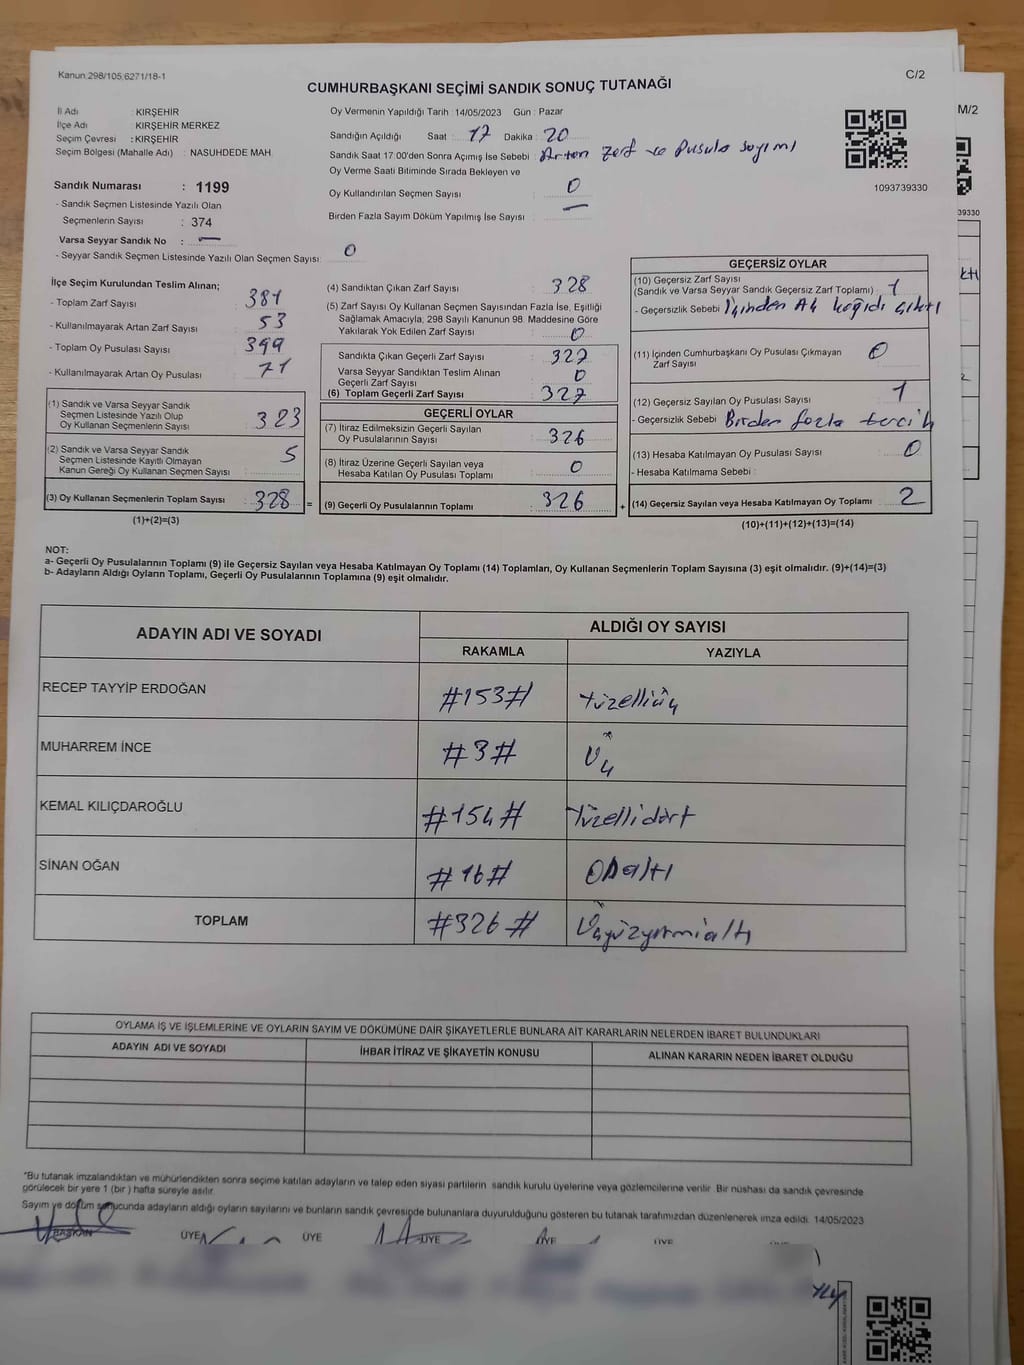 Kanun:298/105;6271/18-1
C/2
CUMHURBAŞKANI SEÇİMİ SANDIK SONUÇ TUTANAĞI
İl Adı : KIRŞEHİR
İlçe Adı : KIRŞEHİR MERKEZ
Seçim Çevresi : KIRŞEHİR
Seçim Bölgesi (Mahalle Adı) : NASUHDEDE MAH.
Sandık Numarası : 1199
- Sandık Seçmen Listesinde Yazılı Olan
Seçmenlerin Sayısı : 374
Varsa Seyyar Sandık No : —
- Seyyar Sandık Seçmen Listesinde Yazılı Olan Seçmen Sayısı: 0
Oy Vermenin Yapıldığı Tarih : 14/05/2023 Gün : Pazar
Sandığın Açıldığı Saat : 17 Dakika : 20
Sandık Saat 17:00'den Sonra Açımış İse Sebebi : Artan zarf ve Pusula sayımı
Oy Verme Saati Bitiminde Sırada Bekleyen ve
Oy Kullandırılan Seçmen Sayısı : 0
Birden Fazla Sayım Döküm Yapılmış İse Sayısı : —
1093739330
M/2
39330
İlçe Seçim Kurulundan Teslim Alınan;
- Toplam Zarf Sayısı : 381
- Kullanılmayarak Artan Zarf Sayısı : 53
- Toplam Oy Pusulası Sayısı : 399
- Kullanılmayarak Artan Oy Pusulası : 71
(1) Sandık ve Varsa Seyyar Sandık
Seçmen Listesinde Yazılı Olup
Oy Kullanan Seçmenlerin Sayısı : 323
(2) Sandık ve Varsa Seyyar Sandık
Seçmen Listesinde Kayıtlı Olmayan
Kanun Gereği Oy Kullanan Seçmen Sayısı : 5
(3) Oy Kullanan Seçmenlerin Toplam Sayısı : 328 =
(1)+(2)=(3)
(4) Sandıktan Çıkan Zarf Sayısı : 328
(5) Zarf Sayısı Oy Kullanan Seçmen Sayısından Fazla İse, Eşitliği
Sağlamak Amacıyla, 298 Sayılı Kanunun 98. Maddesine Göre
Yakılarak Yok Edilen Zarf Sayısı : 0
Sandıkta Çıkan Geçerli Zarf Sayısı : 327
Varsa Seyyar Sandıktan Teslim Alınan
Geçerli Zarf Sayısı : 0
(6) Toplam Geçerli Zarf Sayısı : 327
GEÇERLİ OYLAR
(7) İtiraz Edilmeksizin Geçerli Sayılan
Oy Pusulalarının Sayısı : 326
(8) İtiraz Üzerine Geçerli Sayılan veya
Hesaba Katılan Oy Pusulası Toplamı : 0
(9) Geçerli Oy Pusulalarının Toplamı : 326 +
GEÇERSİZ OYLAR
(10) Geçersiz Zarf Sayısı
(Sandık ve Varsa Seyyar Sandık Geçersiz Zarf Toplamı) : 1
- Geçersizlik Sebebi : İçinden A4 kağıdı çıktı
(11) İçinden Cumhurbaşkanı Oy Pusulası Çıkmayan
Zarf Sayısı : 0
(12) Geçersiz Sayılan Oy Pusulası Sayısı : 1
- Geçersizlik Sebebi : Birden fazla tercih
(13) Hesaba Katılmayan Oy Pusulası Sayısı : 0
- Hesaba Katılmama Sebebi :
(14) Geçersiz Sayılan veya Hesaba Katılmayan Oy Toplamı : 2
(10)+(11)+(12)+(13)=(14)
NOT:
a- Geçerli Oy Pusulalarının Toplamı (9) ile Geçersiz Sayılan veya Hesaba Katılmayan Oy Toplamı (14) Toplamları, Oy Kullanan Seçmenlerin Toplam Sayısına (3) eşit olmalıdır. (9)+(14)=(3)
b- Adayların Aldığı Oyların Toplamı, Geçerli Oy Pusulalarının Toplamına (9) eşit olmalıdır.
ADAYIN ADI VE SOYADI
ALDIĞI OY SAYISI
RAKAMLA YAZIYLA
RECEP TAYYİP ERDOĞAN #153# Yüzelliüç
MUHARREM İNCE #3# Üç
KEMAL KILIÇDAROĞLU #154# Yüzellidört
SİNAN OĞAN #16# Onaltı
TOPLAM #326# Üçyüzyirmialtı
OYLAMA İŞ VE İŞLEMLERİNE VE OYLARIN SAYIM VE DÖKÜMÜNE DAİR ŞİKAYETLERLE BUNLARA AİT KARARLARIN NELERDEN İBARET BULUNDUKLARI
ADAYIN ADI VE SOYADI İHBAR İTİRAZ VE ŞİKAYETİN KONUSU ALINAN KARARIN NEDEN İBARET OLDUĞU
*Bu tutanak imzalandıktan ve mühürlendikten sonra seçime katılan adayların ve talep eden siyasi partilerin sandık kurulu üyelerine veya gözlemcilerine verilir. Bir nüshası da sandık çevresinde
görülecek bir yere 1 (bir ) hafta süreyle asılır.
Sayım ve döküm sonucunda adayların aldığı oyların sayılarını ve bunların sandık çevresinde bulunanlara duyurulduğunu gösteren bu tutanak tarafımızdan düzenlenerek imza edildi. 14/05/2023
BAŞKAN ÜYE ÜYE ÜYE ÜYE ÜYE